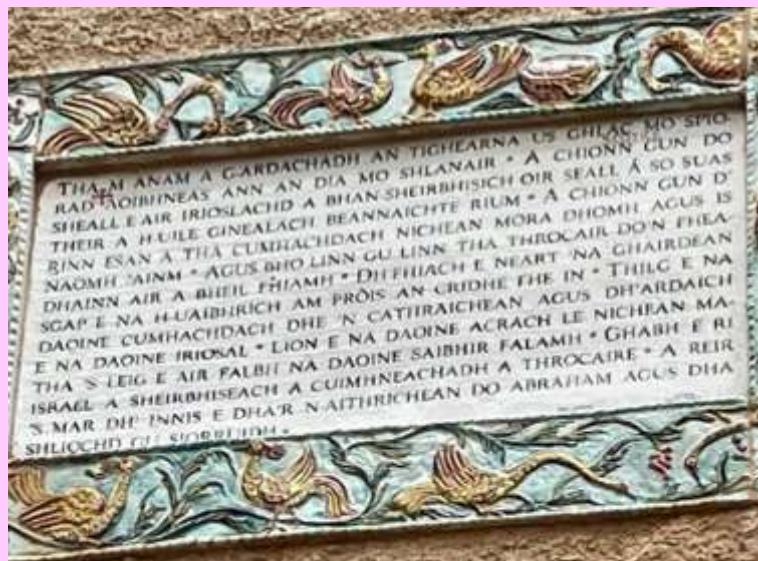 THA M ANAM A G ARDACHADH AN TIGHEARNA US GHLAC MO SPIO-
RAD AOIBHNEAS ANN AN DIA MO SHLANAIR • A CHIONN GUN DO
SHEALL E AIR IRIOSLACHD A BHAN-SHEIRBHISICH OIR SEALL Á SO SUAS
THEIR A H-UILE GINEALACH BEANNAICHTE RIUM • A CHIONN GUN D'
RINN ESAN A THA CUMHACHDACH NICHEAN MORA DHOMH AGUS IS
NAOMH 'AINM • AGUS BHO LINN GU LINN THA THROCAIR DO'N FHEA-
DHAINN AIR A BHEIL FHIAMH • DH'FHIACH E NEART 'NA GHAIRDEAN
SGAP E NA H-UAIBHRICH AM PRÒIS AN CRIDHE FHE IN • THILG E NA
DAOINE CUMHACHDACH DHE 'N CATHRAICHEAN AGUS DH'ARDAICH
E NA DAOINE IRIOSAL • LION E NA DAOINE ACRACH LE NICHEAN MA-
THA 'S LEIG E AIR FALBH NA DAOINE SAIBHIR FALAMH • GHABH E RI
ISRAEL A SHEIRBHISEACH A CUIMHNEACHADH A THROCAIRE • A REIR
'S MAR DH' INNIS E DHA'R N-AITHRICHEAN DO ABRAHAM AGUS DHA
SHLIOCHD GU SIORRUIDH •